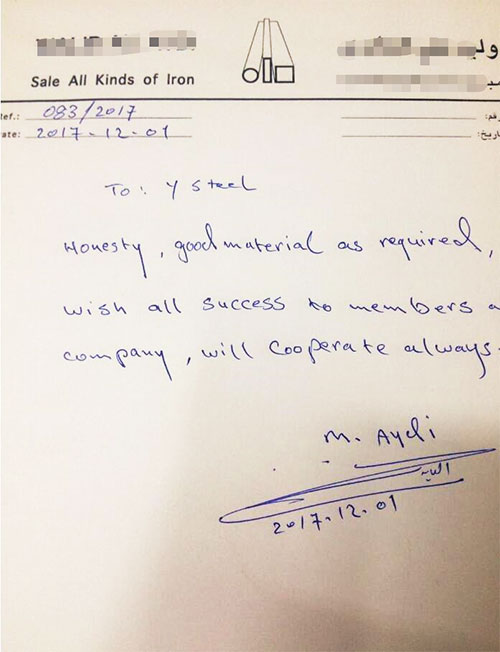 Sale All Kinds of Iron
tef.: 083/2017
ate: 2017-12-01
رقم:
اريخ:
To: Y Steel
Honesty, good material as required,
wish all success to members a
company, will Cooperate always.
M. Aydi
2017.12.01